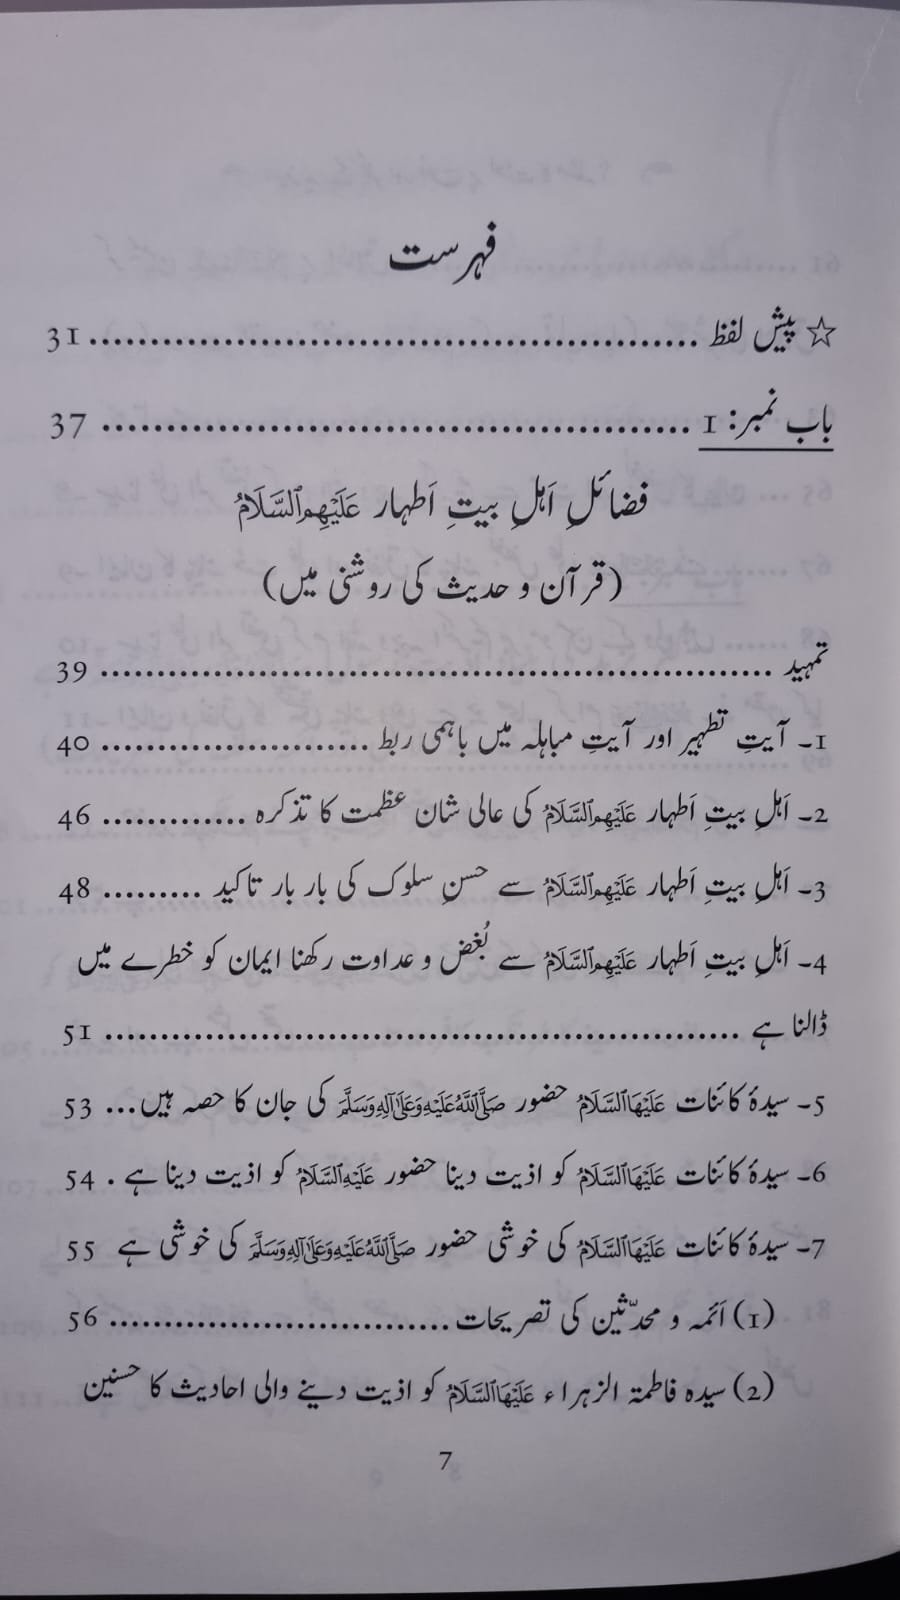 فہرست
☆ پیش لفظ ................................................ 31
باب نمبر: 1 ................................................ 37
فضائلِ اَہلِ بیتِ اَطہار عَلَیْہِمُ السَّلَامُ
(قرآن و حدیث کی روشنی میں)
تمہید ........................................................ 39
1۔ آیتِ تطہیر اور آیتِ مباہلہ میں باہمی ربط ........................ 40
2۔ اَہلِ بیتِ اَطہار عَلَیْہِمُ السَّلَامُ کی عالی شان عظمت کا تذکرہ ............. 46
3۔ اَہلِ بیتِ اَطہار عَلَیْہِمُ السَّلَامُ سے حسنِ سلوک کی بار بار تاکید ......... 48
4۔ اَہلِ بیتِ اَطہار عَلَیْہِمُ السَّلَامُ سے بُغض و عداوت رکھنا ایمان کو خطرے میں
ڈالنا ہے ........................................................ 51
5۔ سیدۂ کائنات عَلَیْہَا السَّلَامُ حضور صَلَّی اللّٰہُ عَلَیْہِ وَعَلٰی آلِہٖ وَسَلَّمَ کی جان کا حصہ ہیں... 53
6۔ سیدۂ کائنات عَلَیْہَا السَّلَامُ کو اذیت دینا حضور عَلَیْہِ السَّلَامُ کو اذیت دینا ہے . 54
7۔ سیدۂ کائنات عَلَیْہَا السَّلَامُ کی خوشی حضور صَلَّی اللّٰہُ عَلَیْہِ وَعَلٰی آلِہٖ وَسَلَّمَ کی خوشی ہے 55
(1) اَئمہ و محدّثین کی تصریحات .............................. 56
(2) سیدہ فاطمۃ الزہراء عَلَیْہَا السَّلَامُ کو اذیت دینے والی احادیث کا حسنین
7